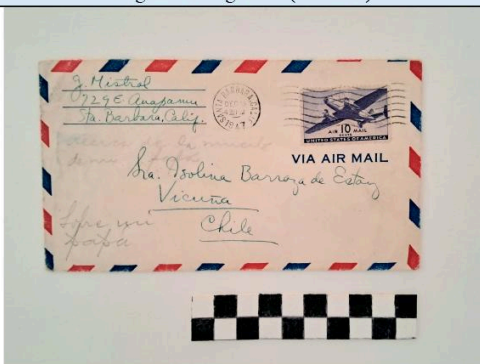 G. Mistral
729 E Anapamu
Sta. Barbara, Calif.
SANTA BARBARA, CAL
1947
AIR 10 MAIL
CENTS
UNITED STATES OF AMERICA
VIA AIR MAIL
la muerte
Sra. Isolina Barraza de Estay
Vicuña
Chile
Sobre mi
papa